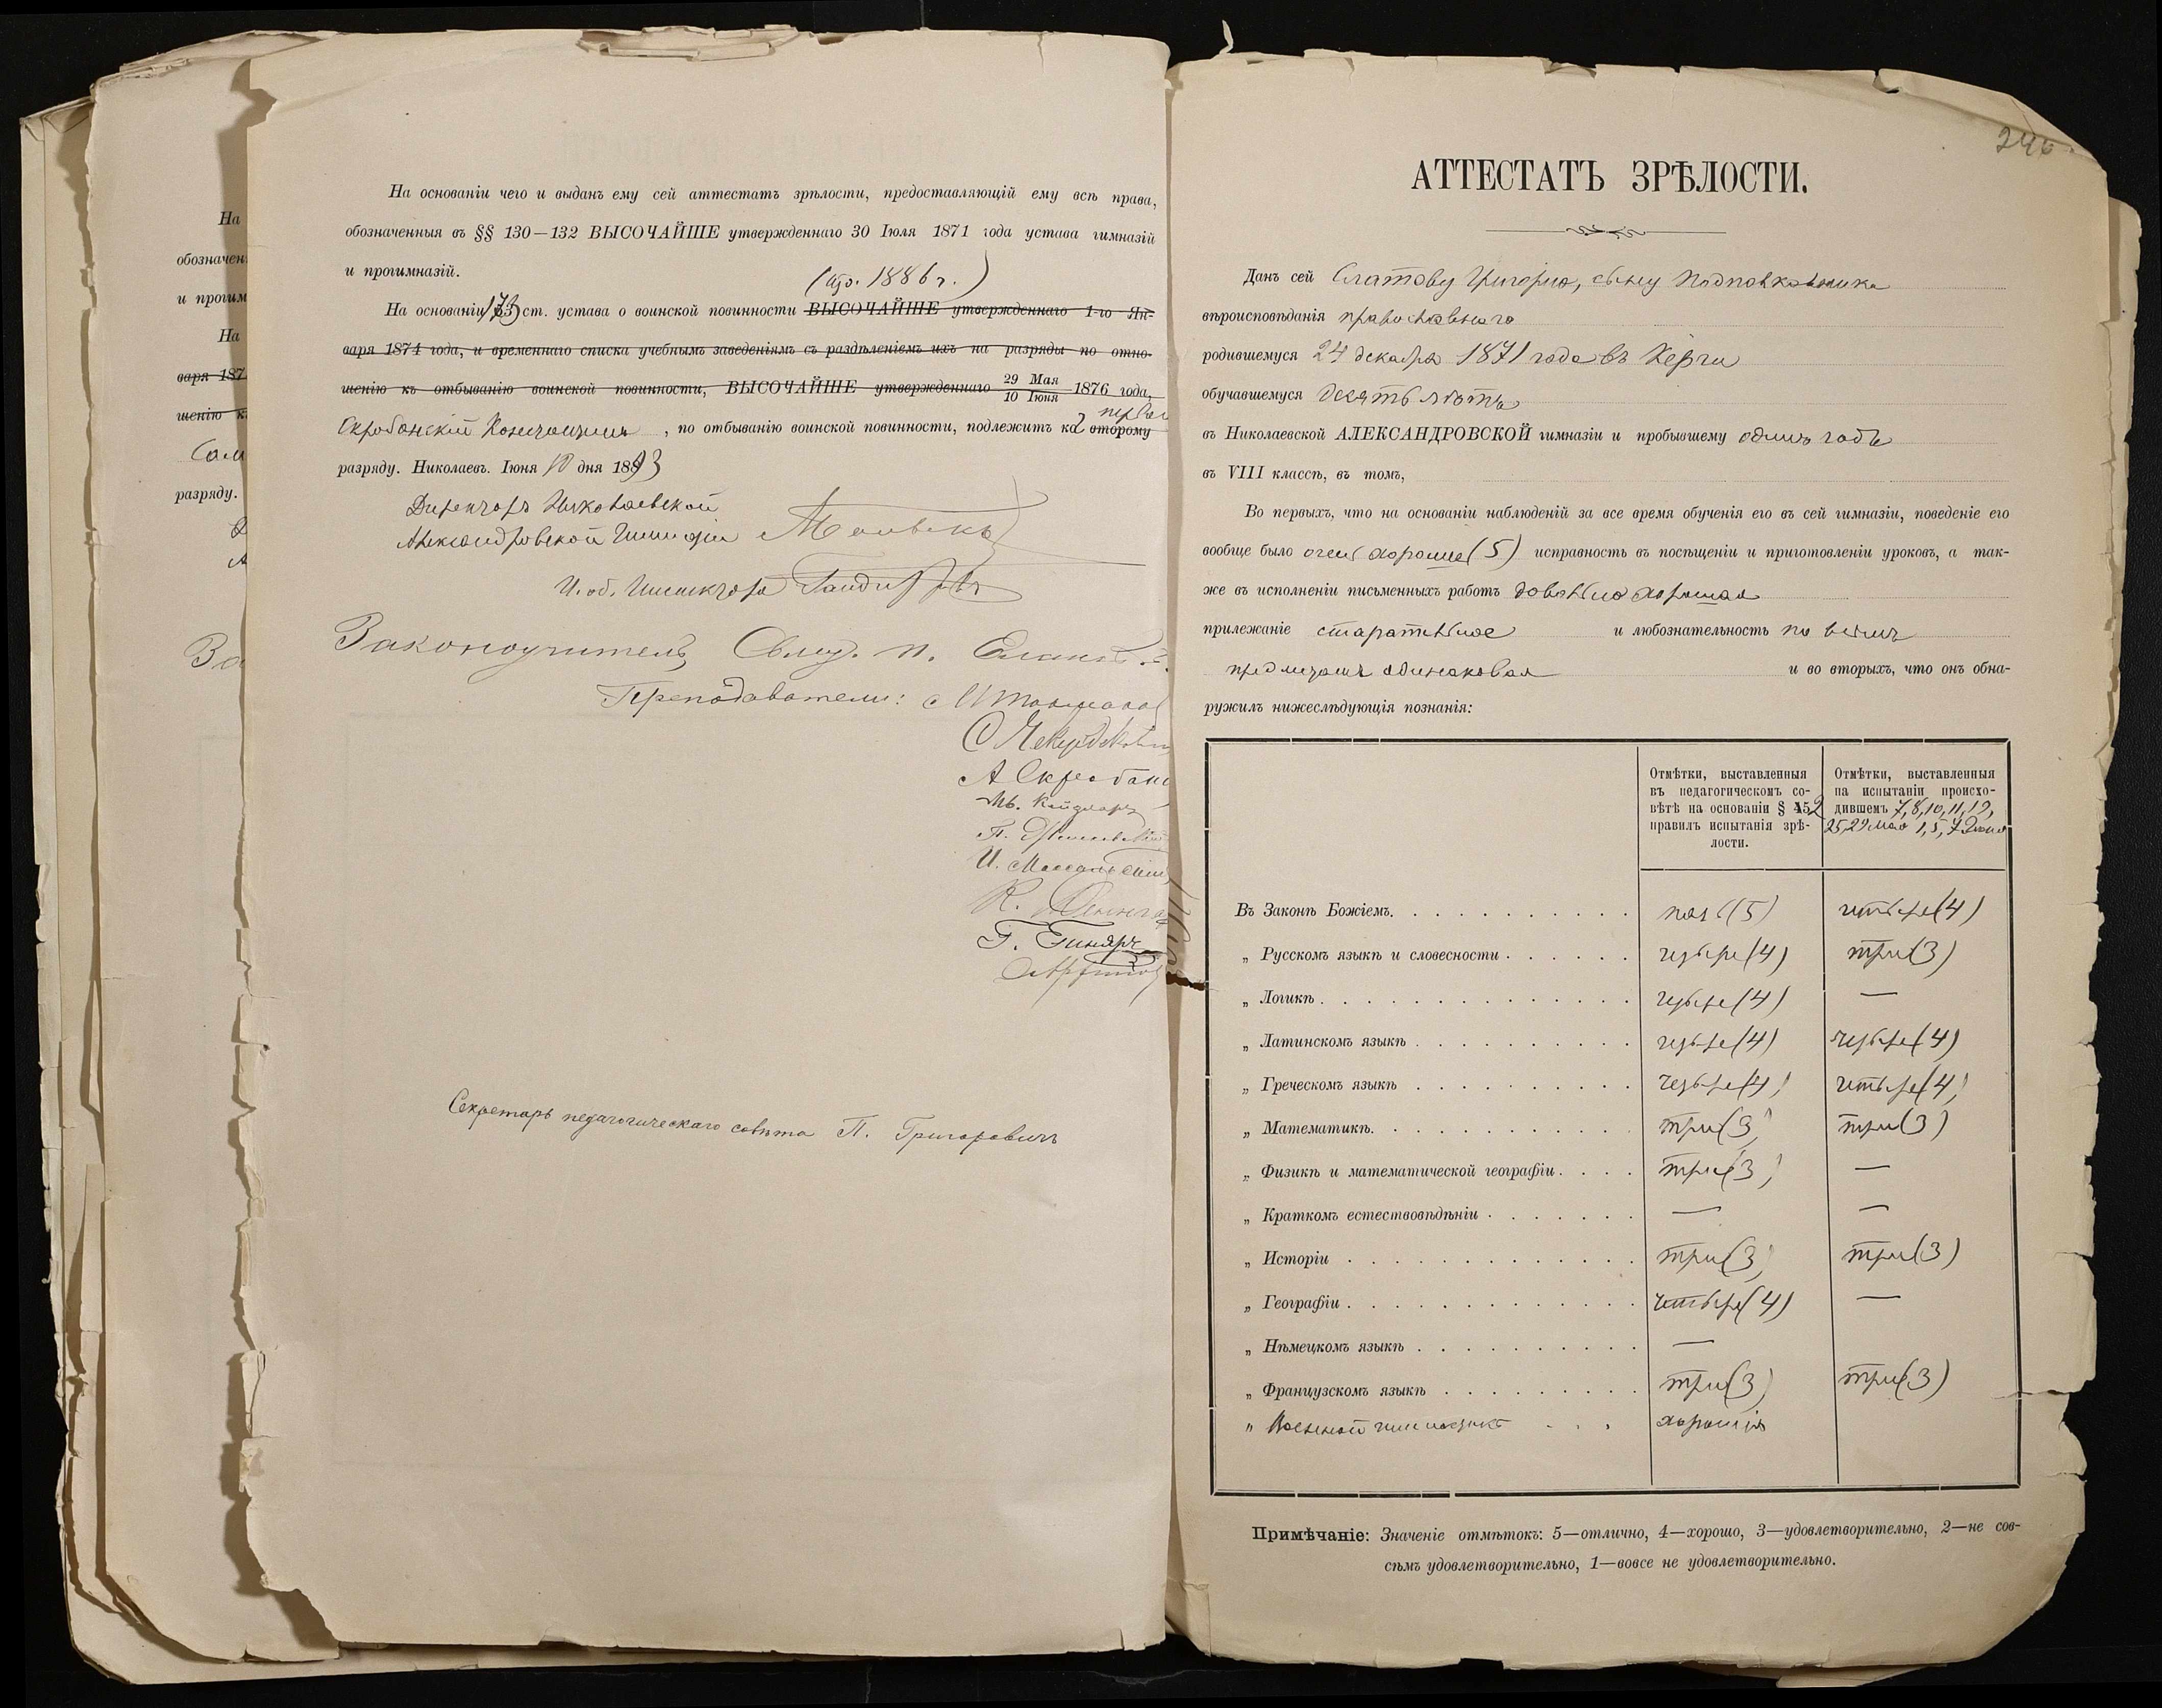 На
обозначен
и прогим
На
варя 187
шенію к
разряду.
На основаніи чего и выданъ ему сей аттестатъ зрѣлости, предоставляющій ему всѣ права,
обозначенныя въ §§ 130—132 ВЫСОЧАЙШЕ утвержденнаго 30 Іюля 1871 года устава гимназій
и прогимназій.
(изд. 1886 г.)
На основаніи 173 ст. устава о воинской повинности ВЫСОЧАЙШЕ утвержденнаго 1-го Ян-
варя 1874 года, и временнаго списка учебнымъ заведеніямъ съ раздѣленіемъ ихъ на разряды по отно-
шенію къ отбыванію воинской повинности, ВЫСОЧАЙШЕ утвержденнаго 29 Мая / 10 Іюня 1876 года,
Скробанскій Константинъ, по отбыванію воинской повинности, подлежитъ ко второму
разряду. Николаевъ. Іюня 10 дня 1893
Директоръ Николаевской
Александровской Гимназіи
И. об. Инспектора
Законоучитель Свящ.
Преподаватели:
А Скробан
Г. Гиняръ
Секретарь педагогическаго совѣта П. Григоровичъ
246
АТТЕСТАТЪ ЗРѢЛОСТИ.
Данъ сей Слатову Григорію, сыну Подполковника
вѣроисповѣданія православнаго
родившемуся 24 декабря 1871 года въ Керчи
обучавшемуся десять лѣтъ
въ Николаевской АЛЕКСАНДРОВСКОЙ гимназіи и пробывшему одинъ годъ
въ VIII классѣ, въ томъ,
Во первыхъ, что на основаніи наблюденій за все время обученія его въ сей гимназіи, поведеніе его
вообще было очень хорошее (5) исправность въ посѣщеніи и приготовленіи уроковъ, а так-
же въ исполненіи письменныхъ работъ довольно хорошая
прилежаніе старательное и любознательность по всѣмъ
предметамъ одинаковая и во вторыхъ, что онъ обна-
ружилъ нижеслѣдующія познанія:
Отмѣтки, выставленныя
въ педагогическомъ со-
вѣтѣ на основаніи § 52
правилъ испытанія зрѣ-
лости.
Отмѣтки, выставленныя
на испытаніи происхо-
дившемъ 7, 8, 10, 11, 12,
25, 29 мая 1, 5, 7 Іюня
Въ Законѣ Божіемъ. пять (5) четыре (4)
„ Русскомъ языкѣ и словесности четыре (4) три (3)
„ Логикѣ четыре (4) —
„ Латинскомъ языкѣ четыре (4) четыре (4)
„ Греческомъ языкѣ четыре (4) четыре (4)
„ Математикѣ. три (3) три (3)
„ Физикѣ и математической географіи три (3) —
„ Краткомъ естествовѣдѣніи — —
„ Исторіи три (3) три (3)
„ Географіи четыре (4) —
„ Нѣмецкомъ языкѣ —
„ Французскомъ языкѣ три (3) три (3)
„ Военной гимнастикѣ хорошія
Примѣчаніе: Значеніе отмѣтокъ: 5—отлично, 4—хорошо, 3—удовлетворительно, 2—не сов-
сѣмъ удовлетворительно, 1—вовсе не удовлетворительно.